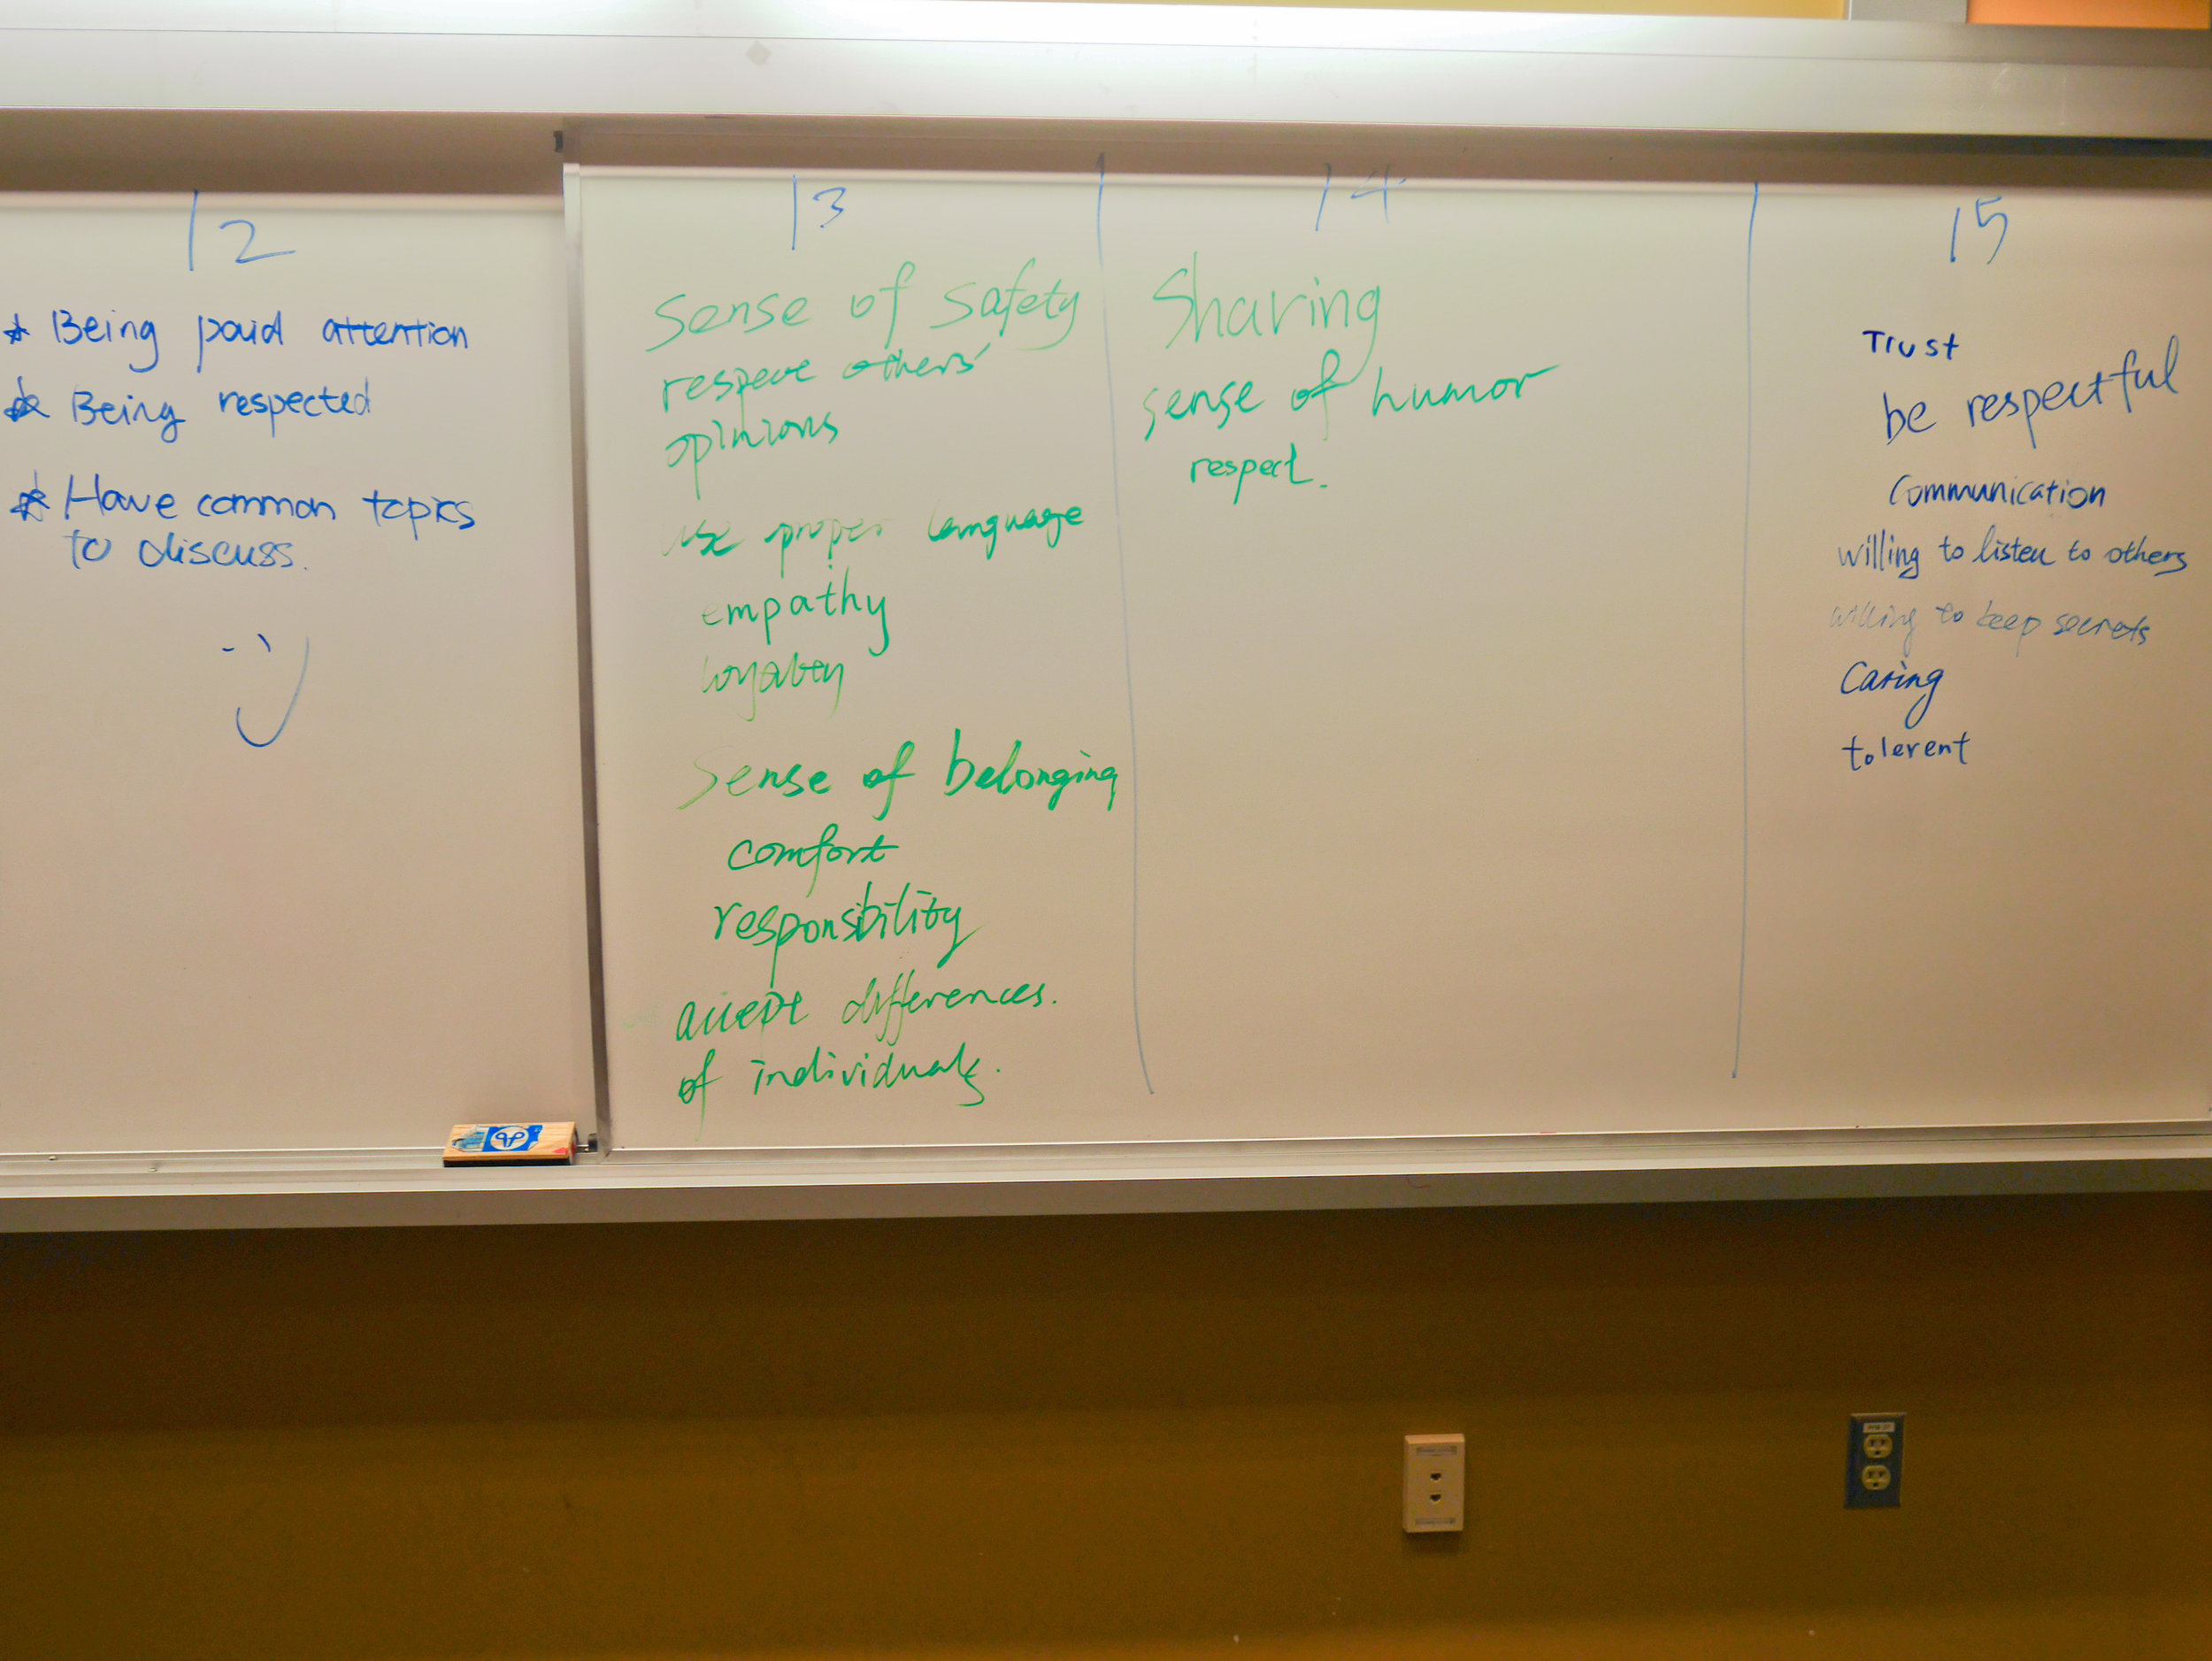 12
Being paid attention
Being respected
Have common topics
to discuss.
13
sense of safety
respect others'
opinions
use proper language
empathy
loyalty
Sense of belonging
comfort
responsbility
accept differences.
of individuals.
14
Sharing
sense of humor
respect.
15
Trust
be respectful
Communication
willing to listen to others
willing to keep secrets
Caring
tolerent